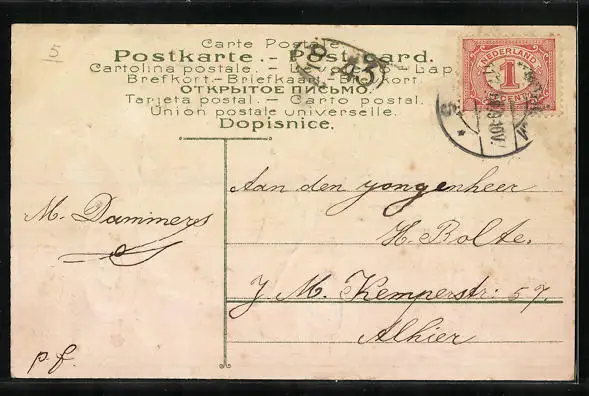 5
Carte Postale
Postkarte.- Post card.
Cartolina postale.- Levelező-Lap
Brefkort.-Briefkaart.-Brevkort.
ОТКРЫТОЕ ПИСЬМО.
Tarjeta postal. - Carto postal.
Union postale universelle.
Dopisnice.
NEDERLAND
1
CENT
5
Aan den yongenheer
M. Dammers
H. Bolte.
J M. Kemperstr: 57
Alhier
p.f.